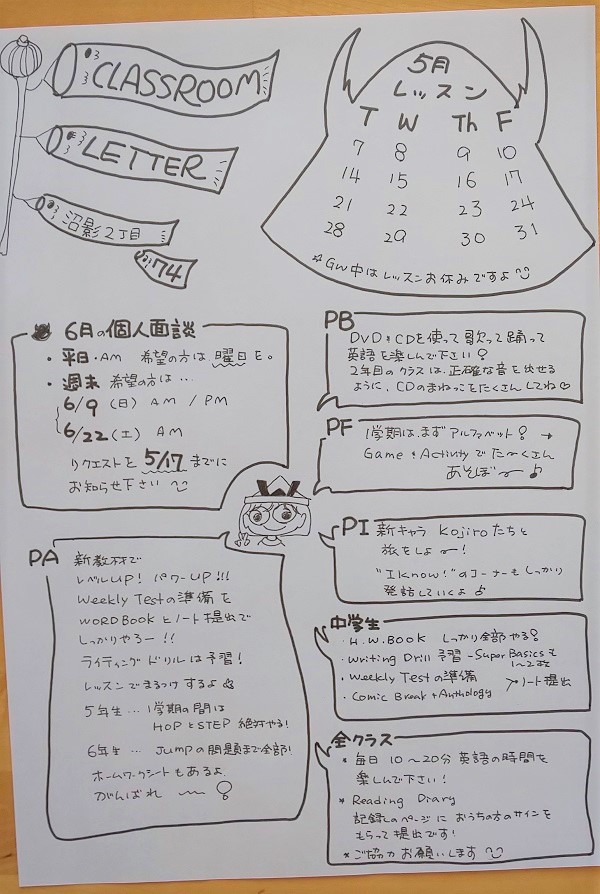 CLASSROOM
LETTER
沼影2丁目
174
5月
レッスン
T W Th F
7 8 9 10
14 15 16 17
21 22 23 24
28 29 30 31
☆GW中はレッスンお休みですよ
6月の個人面談
・平日・AM 希望の方は曜日を。
・週末 希望の方は…
6/9(日) AM / PM
6/22(土) AM
リクエストを5/17までに
お知らせ下さい
PB
DVDとCDを使って歌って踊って
英語を楽しんで下さい!
2年目のクラスは、正確な音を出せる
ように、CDのまねっこをたくさんしてね♡
PF
1学期は、まずアルファベット! →
Game & Activityでた〜くさん
あそぼ〜♪
PI
新キャラ Kojiroたちと
旅をしよ〜!
"I know!"のコーナーもしっかり
発話していくよ♪
PA
新教材で
レベルUP! パワーUP!!!
Weekly Testの準備を
WORD BOOKとノート提出で
しっかりやろー!!
ライティングドリルは予習!
レッスンでまるつけするよ
5年生… 1学期の間は
HOPとSTEP 絶対やる!
6年生… Jumpの問題まで全部!
ホームワークシートもあるよ.
がんばれ 〜!
中学生
・H.W.BOOK しっかり全部やる!
・Writing Drill 予習 - Super Basicsも
・Weekly Testの準備
ノート提出
・Comic Break + Anthology
全クラス
* 毎日10〜20分英語の時間を
楽しんで下さい!
* Reading Diary
記録しのページにおうちの方のサインを
もらって提出です!
* ご協力お願いします